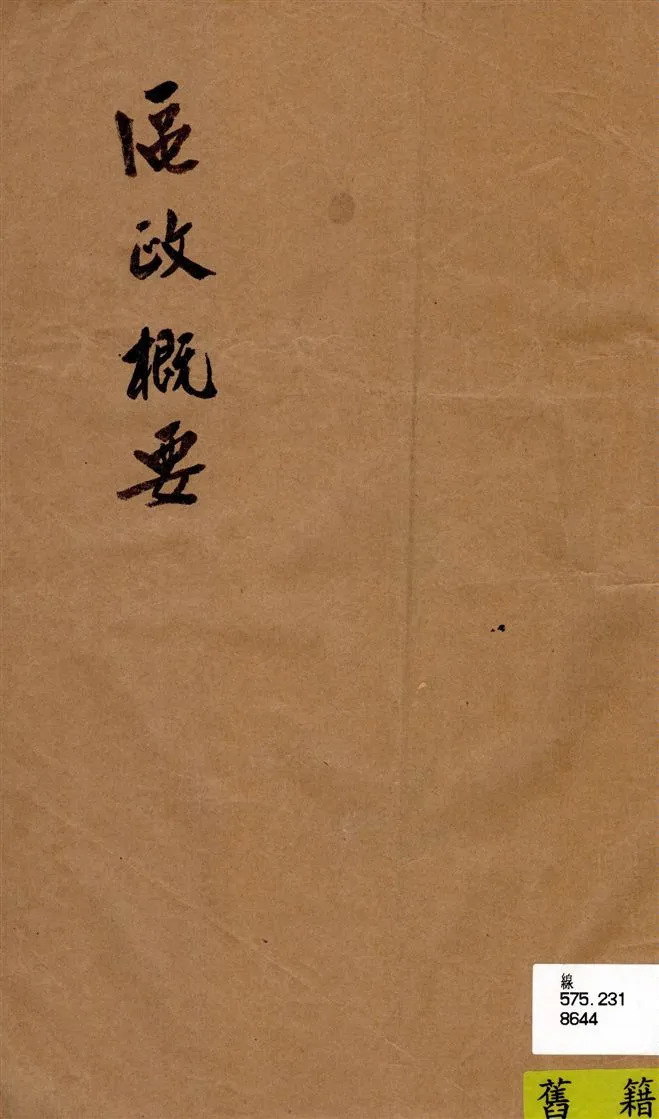 區政概要
線
575.231
8644
舊籍